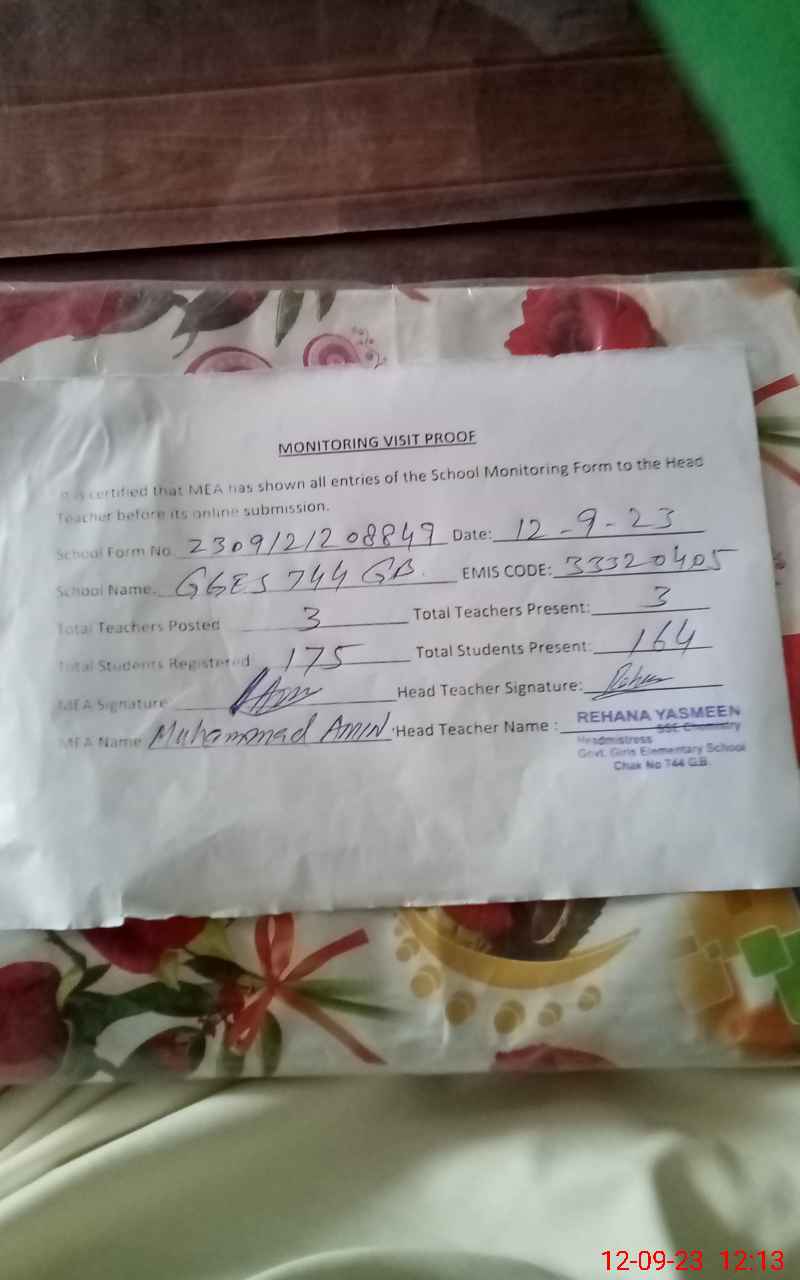 MONITORING VISIT PROOF
It is certified that MEA has shown all entries of the School Monitoring Form to the Head
Teacher before its online submission.
School Form No. 2309121208849 Date: 12-9-23
School Name. GGES 744 GB. EMIS CODE: 33320405
Total Teachers Posted 3 Total Teachers Present: 3
Total Students Registered 175 Total Students Present: 164
MEA Signature Head Teacher Signature:
MEA Name Muhammad AMIN Head Teacher Name :
REHANA YASMEEN
SSE Chemistry
Headmistress
Govt. Girls Elementary School
Chak No 744 G.B.
12-09-23 12:13